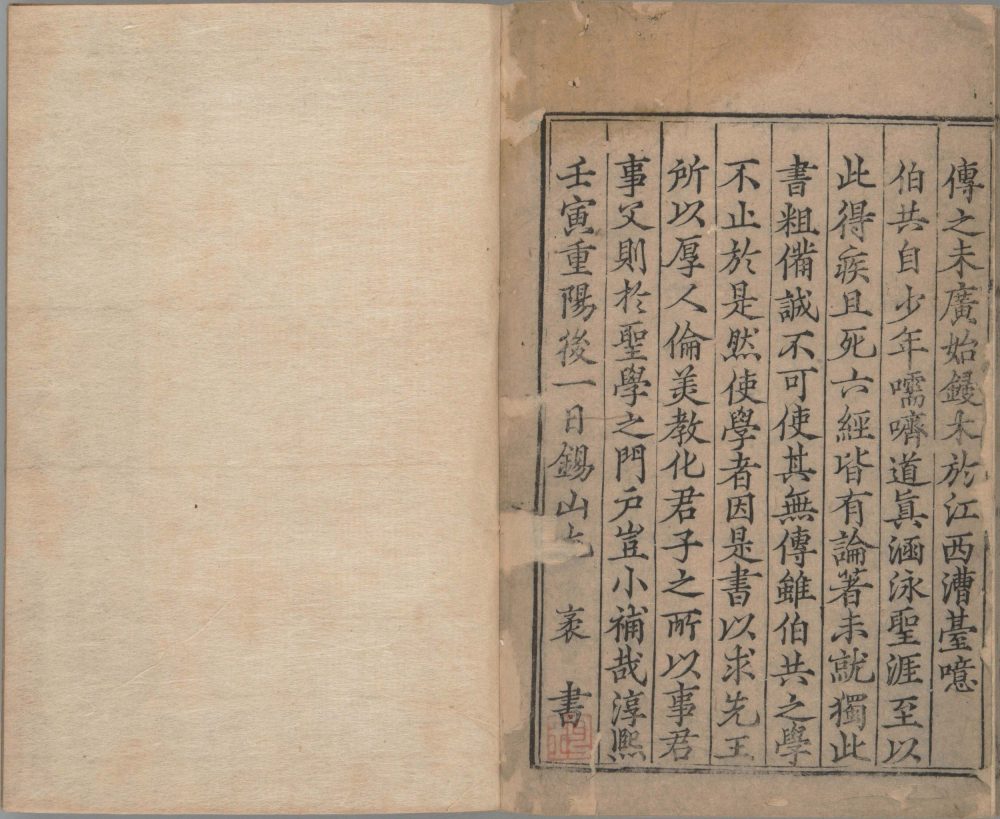 傳之未廣始鋟木於江西漕臺噫
伯共自少年嚅嚌道眞涵泳聖涯至以
此得疾且死六經皆有論著未就獨此
書粗備誠不可使其無傳雖伯共之學
不止於是然使學者因是書以求先王
所以厚人倫美教化君子之所以事君
事父則於聖學之門戶豈小補哉淳熙
壬寅重陽後一日錫山尤袤書